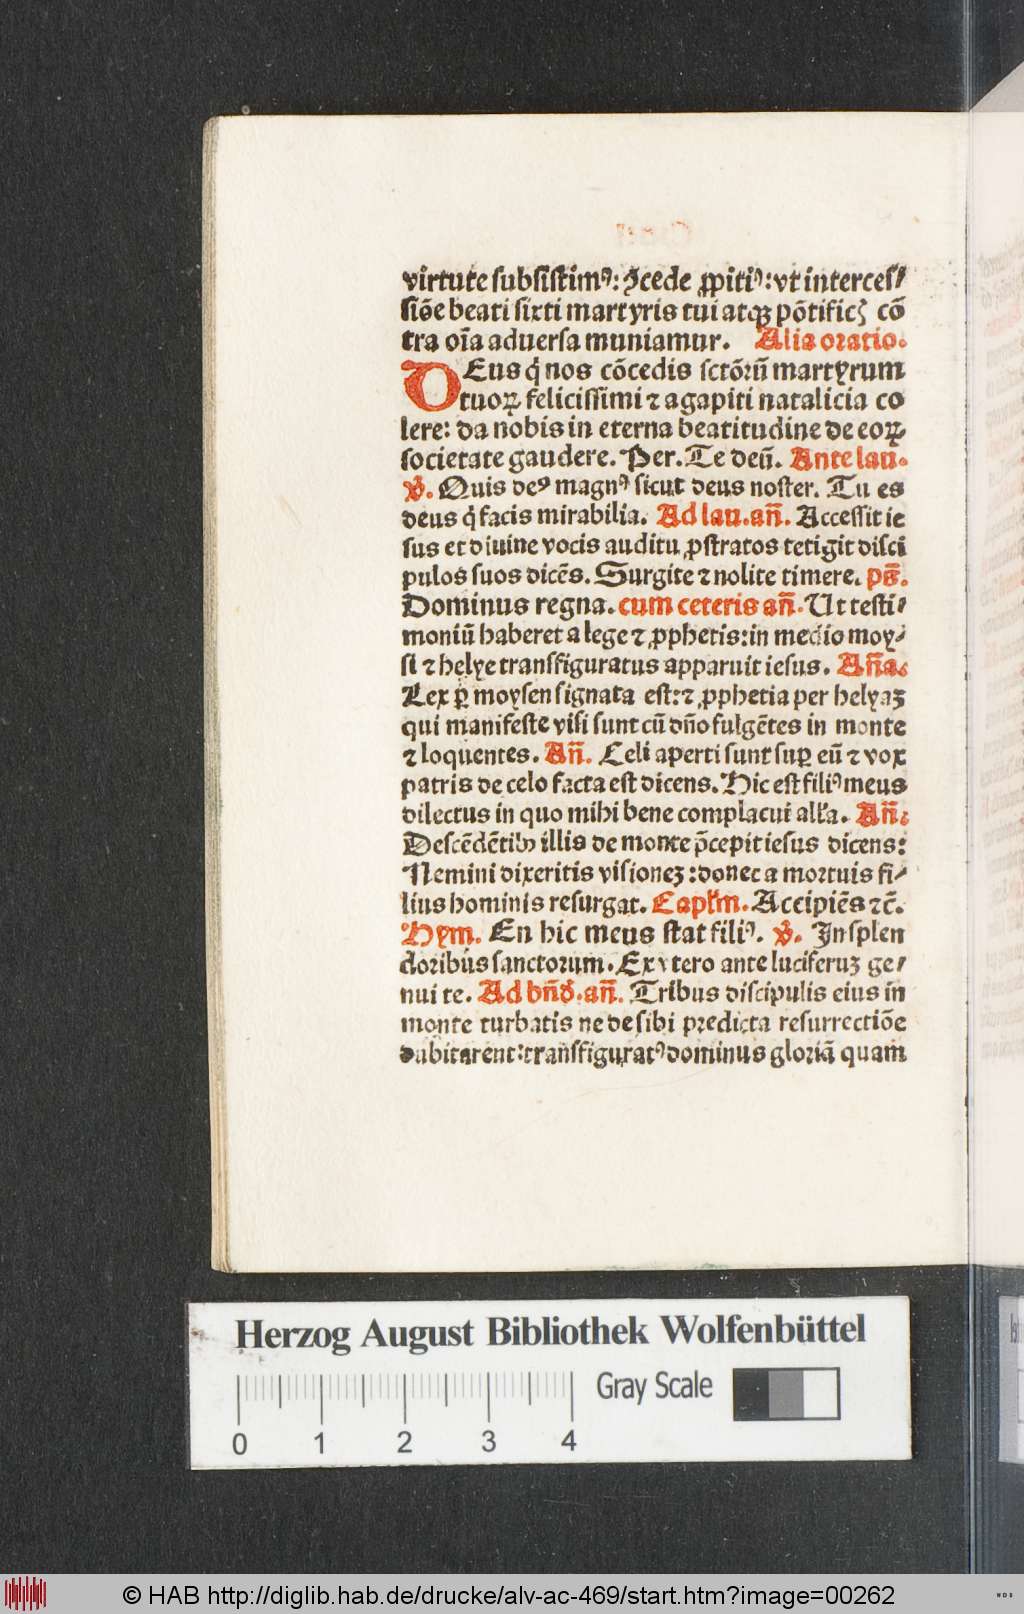 virtute subsistimꝰ: ꝯcede ꝓpitiꝰ: vt interces⸗
siōe beati sixti martyris tui atqꝫ pōtificꝭ cō
tra oīa aduersa muniamur. Alia oratio.
DEus q̄ nos cōcedis sctōrū martyrum
tuoꝝ felicissimi ⁊ agapiti natalicia co
lere: da nobis in eterna beatitudine de eoꝝ
societate gaudere. Per. Te deū. Ante lau.
℣. Quis deꝰ magnꝰ sicut deus noster. Tu es
deus q̄ facis mirabilia. Ad lau. añ. Accessit ie
sus et diuine vocis auditu ꝓstratos tetigit disci
pulos suos dicēs. Surgite ⁊ nolite timere. ps̄.
Dominus regna. cum ceteris añ. Ut testi⸗
moniū haberet a lege ⁊ ꝓphetis: in medio moy⸗
si ⁊ helye transfiguratus apparuit iesus. Aña.
Lex ꝑ moysen signata est: ⁊ ꝓphetia per helyaꝫ
qui manifeste visi sunt cū dño fulgētes in monte
⁊ loquentes. Añ. Celi aperti sunt suꝑ eū ⁊ vox
patris de celo facta est dicens. Hic est filiꝰ meus
dilectus in quo mihi bene complacui allꝛa. Añ.
Descēdētibꝫ illis de monte p̄cepit iesus dicens:
Nemini dixeritis visioneꝫ: donec a mortuis fi⸗
lius hominis resurgat. Capl̓m. Accipiēs ⁊c̄.
Hym. En hic meus stat filiꝰ. ℣. In splen
doribus sanctorum. Ex vtero ante luciferuꝫ ge⸗
nui te. Ad bñd. añ. Tribus discipulis eius in
monte turbatis ne de sibi predicta resurrectiōe
dubitarent: transfiguratꝰ dominus gloriā quam
Herzog August Bibliothek Wolfenbüttel
Gray Scale
0 1 2 3 4
© HAB http://diglib.hab.de/drucke/alv-ac-469/start.htm?image=00262